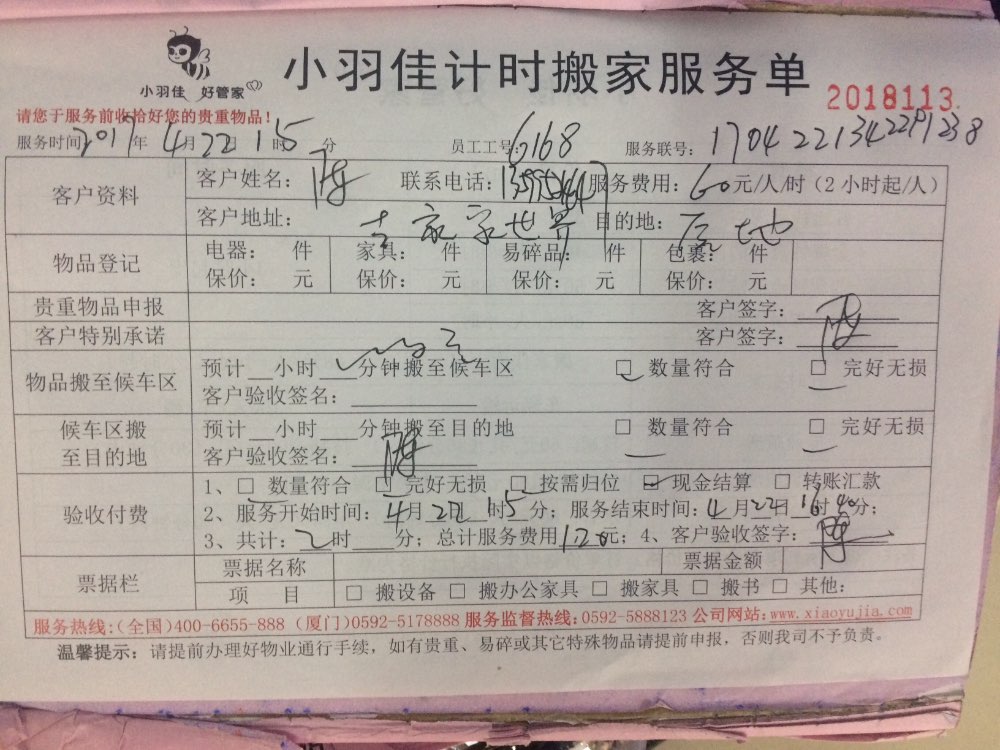 小羽佳 好管家
小羽佳计时搬家服务单
2018113
请您于服务前收拾好您的贵重物品！
服务时间2017年4月22日 1时5分 员工工号：6168 服务联号：
客户资料 客户姓名：陈 联系电话： 服务费用：60元/人/时（2小时起/人）
客户地址： 家世界 目的地：
物品登记 电器： 件 家具： 件 易碎品： 件 包裹： 件
保价： 元 保价： 元 保价： 元 保价： 元
贵重物品申报 客户签字：陈
客户特别承诺 客户签字：
物品搬至候车区 预计__小时___分钟搬至候车区 □ 数量符合 □ 完好无损
客户验收签名：
候车区搬至目的地 预计__小时___分钟搬至目的地 □ 数量符合 □ 完好无损
客户验收签名：陈
验收付费 1、□ 数量符合 □ 完好无损 □ 按需归位 □ 现金结算 □ 转账汇款
2、服务开始时间：4月22日 1时5分；服务结束时间：4月22日16时40分；
3、共计：2时___分；总计服务费用120元；4、客户验收签字：陈
票据栏 票据名称 票据金额
项 目 □ 搬设备 □ 搬办公家具 □ 搬家具 □ 搬书 □ 其他：
服务热线：（全国）400-6655-888（厦门）0592-5178888 服务监督热线：0592-5888123 公司网站：www.xiaoyujia.com
温馨提示：请提前办理好物业通行手续，如有贵重、易碎或其它特殊物品请提前申报，否则我司不予负责。